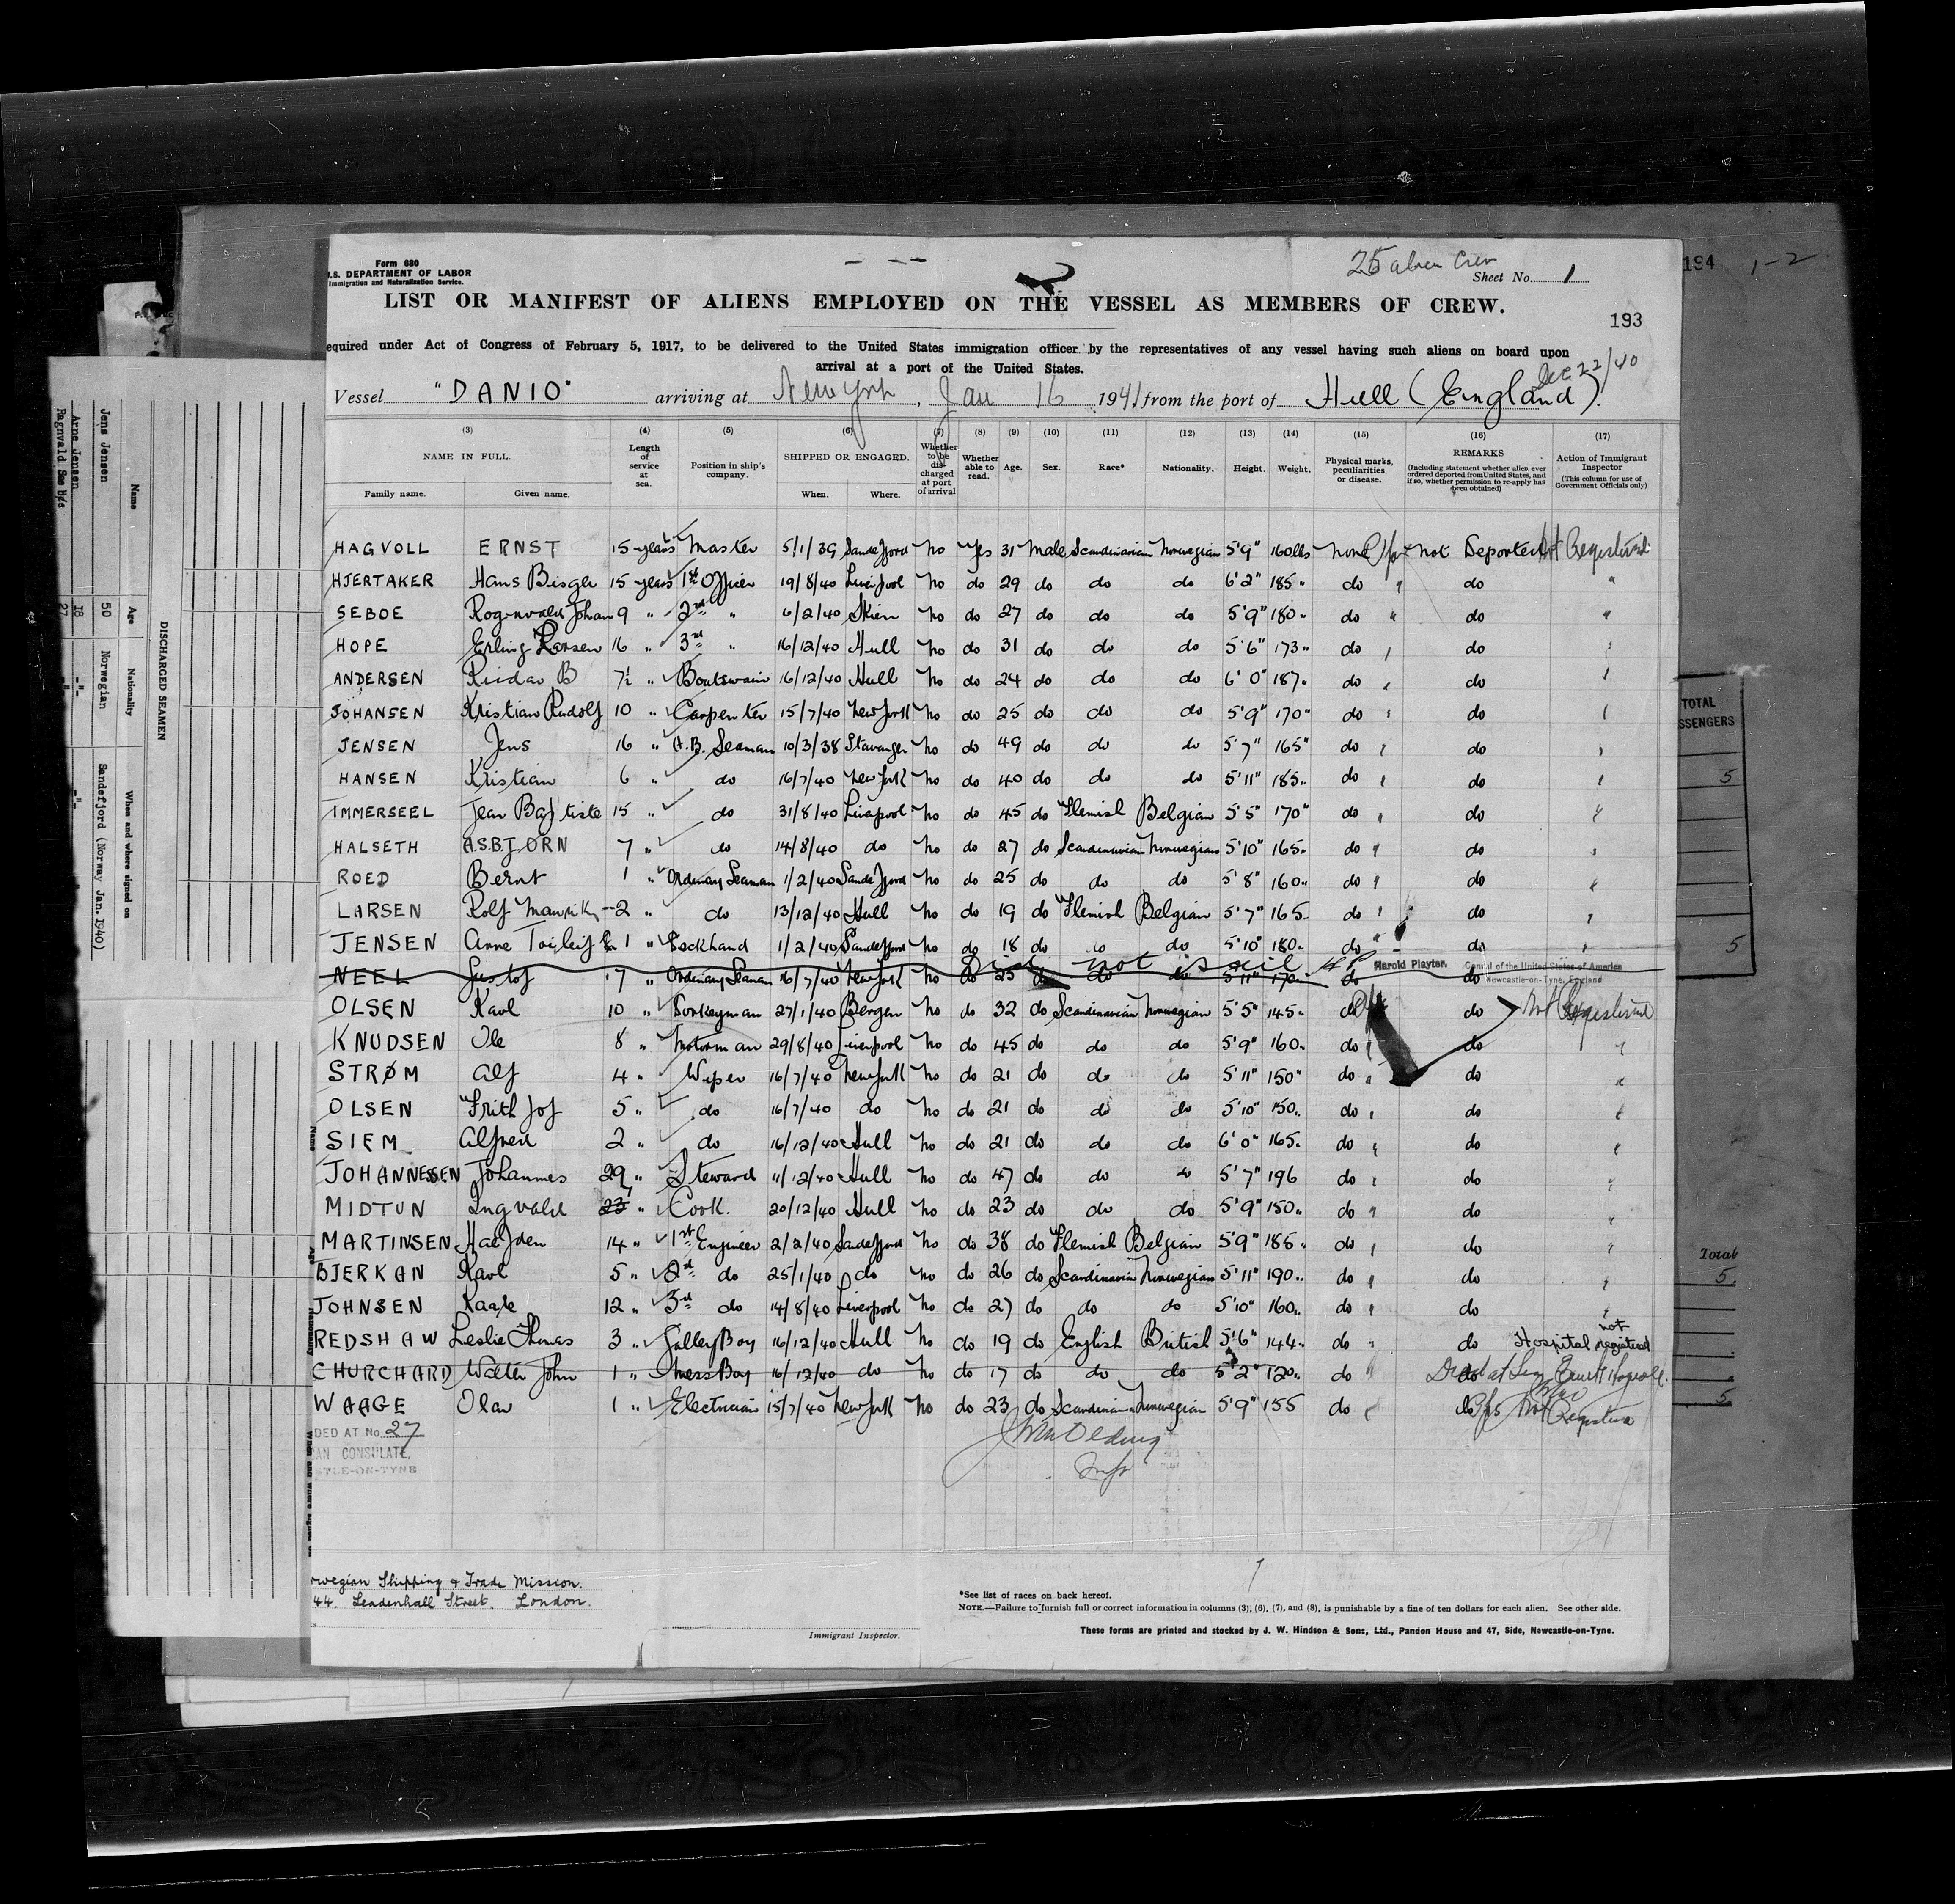 Form 680
U.S. DEPARTMENT OF LABOR
Immigration and Naturalization Service.
25 alien Crew
Sheet No. 1
194 1-2
LIST OR MANIFEST OF ALIENS EMPLOYED ON THE VESSEL AS MEMBERS OF CREW.
193
equired under Act of Congress of February 5, 1917, to be delivered to the United States immigration officer by the representatives of any vessel having such aliens on board upon
arrival at a port of the United States.
Dec 22/40
Vessel "DANIO" arriving at New York, Jan 16 1941 from the port of Hull (England).
(3) (4) (5) (6) (7) (8) (9) (10) (11) (12) (13) (14) (15) (16) (17)
NAME IN FULL. Length of service at sea. Position in ship's company. SHIPPED OR ENGAGED. Whether to be discharged at port of arrival Whether able to read. Age. Sex. Race* Nationality. Height. Weight. Physical marks, peculiarities or disease. REMARKS (Including statement whether alien ever ordered deported from United States, and if so, whether permission to re-apply has been obtained) Action of Immigrant Inspector (This column for use of Government Officials only)
Family name. Given name. When. Where.
HAGVOLL ERNST 15 years Master 5/1/39 Sandefjord No Yes 31 Male Scandinavian Norwegian 5'9" 160lbs None not Deported Not Registered
HJERTAKER Hans Birger 15 years 1st Officer 19/8/40 Liverpool No do 29 do do do 6'2" 185 " do " do "
SEBOE Rognvald Johan 9 " 2nd " 6/2/40 Skien No do 27 do do do 5'9" 180 " do " do "
HOPE Erling Larsen 16 " 3rd " 16/12/40 Hull No do 31 do do do 5'6" 173 " do " do "
ANDERSEN Reidar B 7½ " Boatswain 16/12/40 Hull No do 24 do do do 6'0" 187 " do " do "
JOHANSEN Kristian Rudolf 10 " Carpenter 15/7/40 New York No do 25 do do do 5'9" 170 " do " do "
JENSEN Jens 16 " A.B. Seaman 10/3/38 Stavanger No do 49 do do do 5'7" 165 " do " do "
HANSEN Kristian 6 " do 16/7/40 New York No do 40 do do do 5'11" 185 " do " do "
IMMERSEEL Jean Baptiste 15 " do 31/8/40 Liverpool No do 45 do Flemish Belgian 5'5" 170 " do " do "
HALSETH ASBJØRN 7 " do 14/8/40 do No do 27 do Scandinavian Norwegian 5'10" 165 " do " do "
ROED Bernt 1 " Ordinary Seaman 1/2/40 Sandefjord No do 25 do do do 5'8" 160 " do " do "
LARSEN Rolf 2 " do 13/12/40 Hull No do 19 do Flemish Belgian 5'7" 165 do " do "
JENSEN Arne 1 " Deckhand 1/2/40 Sandefjord No do 18 do do do 5'10" 180 " do " do "
Did not sail H.P. Harold Playter. Consul of the United States of America
NEEL Gustof 7 " Ordinary Seaman 16/7/40 New York No do 25 do do do 5'11" 170 do do
Newcastle-on-Tyne, England
OLSEN Karl 10 " Donkeyman 27/1/40 Bergen No do 32 do Scandinavian Norwegian 5'5" 145 " do do Not Registered
KNUDSEN Ole 8 " Motorman 29/8/40 Liverpool No do 45 do do do 5'9" 160 " do " do "
STRØM Alf 4 " Wiper 16/7/40 New York No do 21 do do do 5'11" 150 " do " do "
OLSEN Frithjof 5 " do 16/7/40 do No do 21 do do do 5'10" 150 " do " do "
SIEM Alfred 2 " do 16/12/40 Hull No do 21 do do do 6'0" 165 " do " do "
JOHANNESSEN Johannes 29 " Steward 11/12/40 Hull No do 47 do do do 5'7" 196 do " do "
MIDTUN Ingvald 23 7 " Cook. 20/12/40 Hull No do 23 do do do 5'9" 150 " do " do "
MARTINSEN 14 " 1st Engineer 2/2/40 Sandefjord No do 38 do Flemish Belgian 5'9" 185 " do " do "
BJERKAN Karl 5 " 2nd do 25/1/40 do No do 26 do Scandinavian Norwegian 5'11" 190 " do " do "
JOHNSEN Kaare 12 " 3rd do 14/8/40 Liverpool No do 27 do do do 5'10" 160 " do " do "
REDSHAW Leslie Thomas 3 " Galley Boy 16/12/40 Hull No do 19 do English British 5'6" 144 " do " do Hospital not registered
CHURCHARD Walter John 1 " Mess Boy 16/12/40 do No do 17 do do do 5'2" 120 " do " do
WAAGE Olav 1 " Electrician 15/7/40 New York No do 23 do Scandinavian Norwegian 5'9" 155 do do Not Registered
DED AT No. 27
AN CONSULATE,
TLE-ON-TYNE
rwegian Shipping & Trade Mission.
44. Leadenhall Street. London.
Immigrant Inspector.
*See list of races on back hereof.
NOTE.—Failure to furnish full or correct information in columns (3), (6), (7), and (8), is punishable by a fine of ten dollars for each alien. See other side.
These forms are printed and stocked by J. W. Hindson & Sons, Ltd., Pandon House and 47, Side, Newcastle-on-Tyne.
DISCHARGED SEAMEN
Name Age Nationality When and where signed on
Jens Jensen 50 Norwegian Sandefjord (Norway Jan. 1940)
Arne Jensen 18 -"- -"-
Ragnvald See Bøe 27 -"-
TOTAL
SSENGERS
5
5
Total
5
5